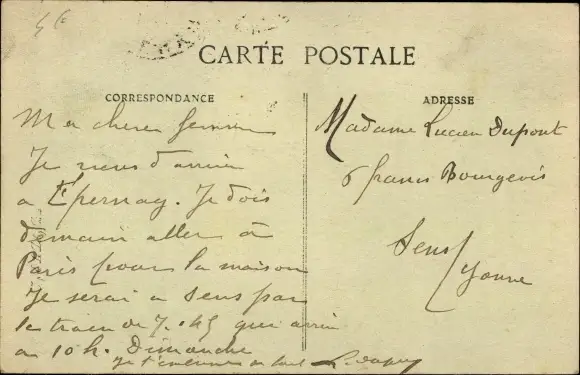 CARTE POSTALE
CORRESPONDANCE
Ma chere
Je viens d'arriver
a Epernay. Je dois
demain aller à
Paris pour la maison
Je serai a Sens par
le train de 7.45 qui arrive
a 10h. Dimanche
Je t'embrasse
L. Dupont
ADRESSE
Madame Lucien Dupont
6 francs Bourgeois
Sens
Yonne